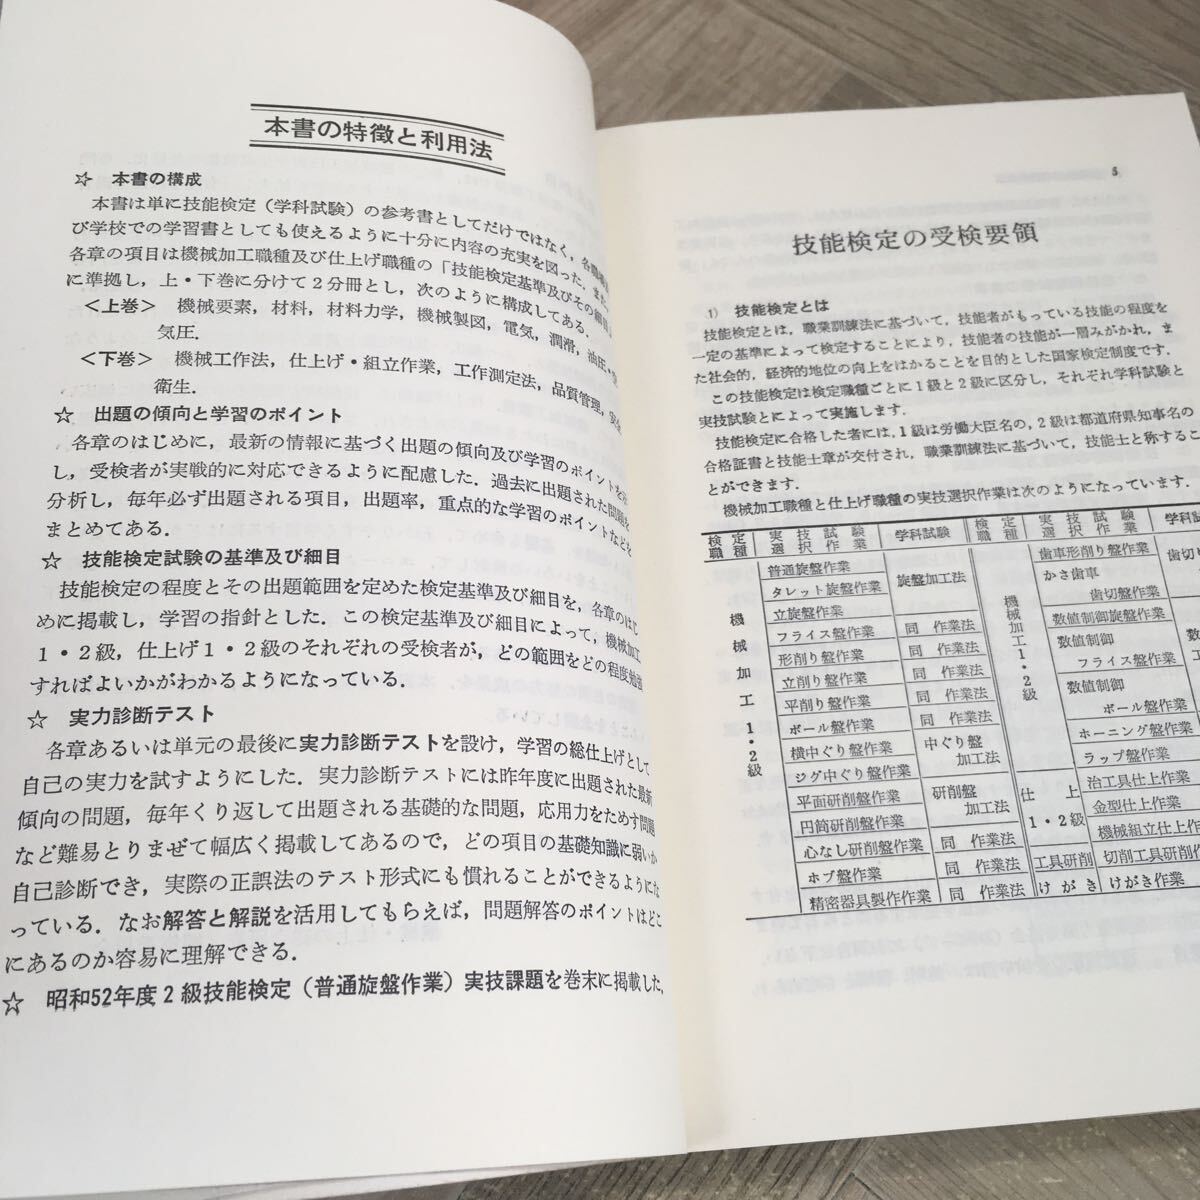 本書の特徴と利用法
☆ 本書の構成
本書は単に技能検定（学科試験）の参考書としてだけではなく，各職場
び学校での学習書としても使えるように十分に内容の充実を図った．また，
各章の項目は機械加工職種及び仕上げ職種の「技能検定基準及びその細目」
に準拠し，上・下巻に分けて2分冊とし，次のように構成してある．
＜上巻＞ 機械要素，材料，材料力学，機械製図，電気，潤滑，油圧・空
気圧．
＜下巻＞ 機械工作法，仕上げ・組立作業，工作測定法，品質管理，安全
衛生．
☆ 出題の傾向と学習のポイント
各章のはじめに，最新の情報に基づく出題の傾向及び学習のポイントを
し，受検者が実戦的に対応できるように配慮した．過去に出題された問題を
分析し，毎年必ず出題される項目，出題率，重点的な学習のポイントなどを
まとめてある．
☆ 技能検定試験の基準及び細目
技能検定の程度とその出題範囲を定めた検定基準及び細目を，各章のはじ
めに掲載し，学習の指針とした．この検定基準及び細目によって，機械加工
1・2級，仕上げ1・2級のそれぞれの受検者が，どの範囲をどの程度勉強
すればよいかがわかるようになっている．
☆ 実力診断テスト
各章あるいは単元の最後に実力診断テストを設け，学習の総仕上げとして
自己の実力を試すようにした．実力診断テストには昨年度に出題された最新
傾向の問題，毎年くり返して出題される基礎的な問題，応用力をためす問題
など難易とりまぜて幅広く掲載してあるので，どの項目の基礎知識に弱いか
自己診断でき，実際の正誤法のテスト形式にも慣れることができるようにな
っている．なお解答と解説を活用してもらえば，問題解答のポイントはどこ
にあるのか容易に理解できる．
☆ 昭和52年度2級技能検定（普通旋盤作業）実技課題を巻末に掲載した．
5
技能検定の受検要領
1） 技能検定とは
技能検定とは，職業訓練法に基づいて，技能者がもっている技能の程度を
一定の基準によって検定することにより，技能者の技能が一層みがかれ，ま
た社会的，経済的地位の向上をはかることを目的とした国家検定制度です．
この技能検定は検定職種ごとに1級と2級に区分し，それぞれ学科試験と
実技試験とによって実施します．
技能検定に合格した者には，1級は労働大臣名の，2級は都道府県知事名の
合格証書と技能士章が交付され，職業訓練法に基づいて，技能士と称するこ
とができます．
機械加工職種と仕上げ職種の実技選択作業は次のようになっています．
検定職種 実技試験選択作業 学科試験 検定職種 実技試験選択作業 学科試
機械加工1・2級
普通旋盤作業 旋盤加工法
タレット旋盤作業
立旋盤作業
フライス盤作業 同 作業法
形削り盤作業 同 作業法
立削り盤作業 同 作業法
平削り盤作業 同 作業法
ボール盤作業 同 作業法
横中ぐり盤作業 中ぐり盤加工法
ジグ中ぐり盤作業
平面研削盤作業 研削盤加工法
円筒研削盤作業
心なし研削盤作業 同 作業法
ホブ盤作業 同 作業法
精密器具製作作業 同 作業法
機械加工1・2級
歯車形削り盤作業 歯切り
かさ歯車歯切盤作業
数値制御旋盤作業
数値制御フライス盤作業
数値制御ボール盤作業
ホーニング盤作業
ラップ盤作業
仕上1・2級
治工具仕上作業
金型仕上作業
機械組立仕上
工具研削 切削工具研削作
けがき けがき作業